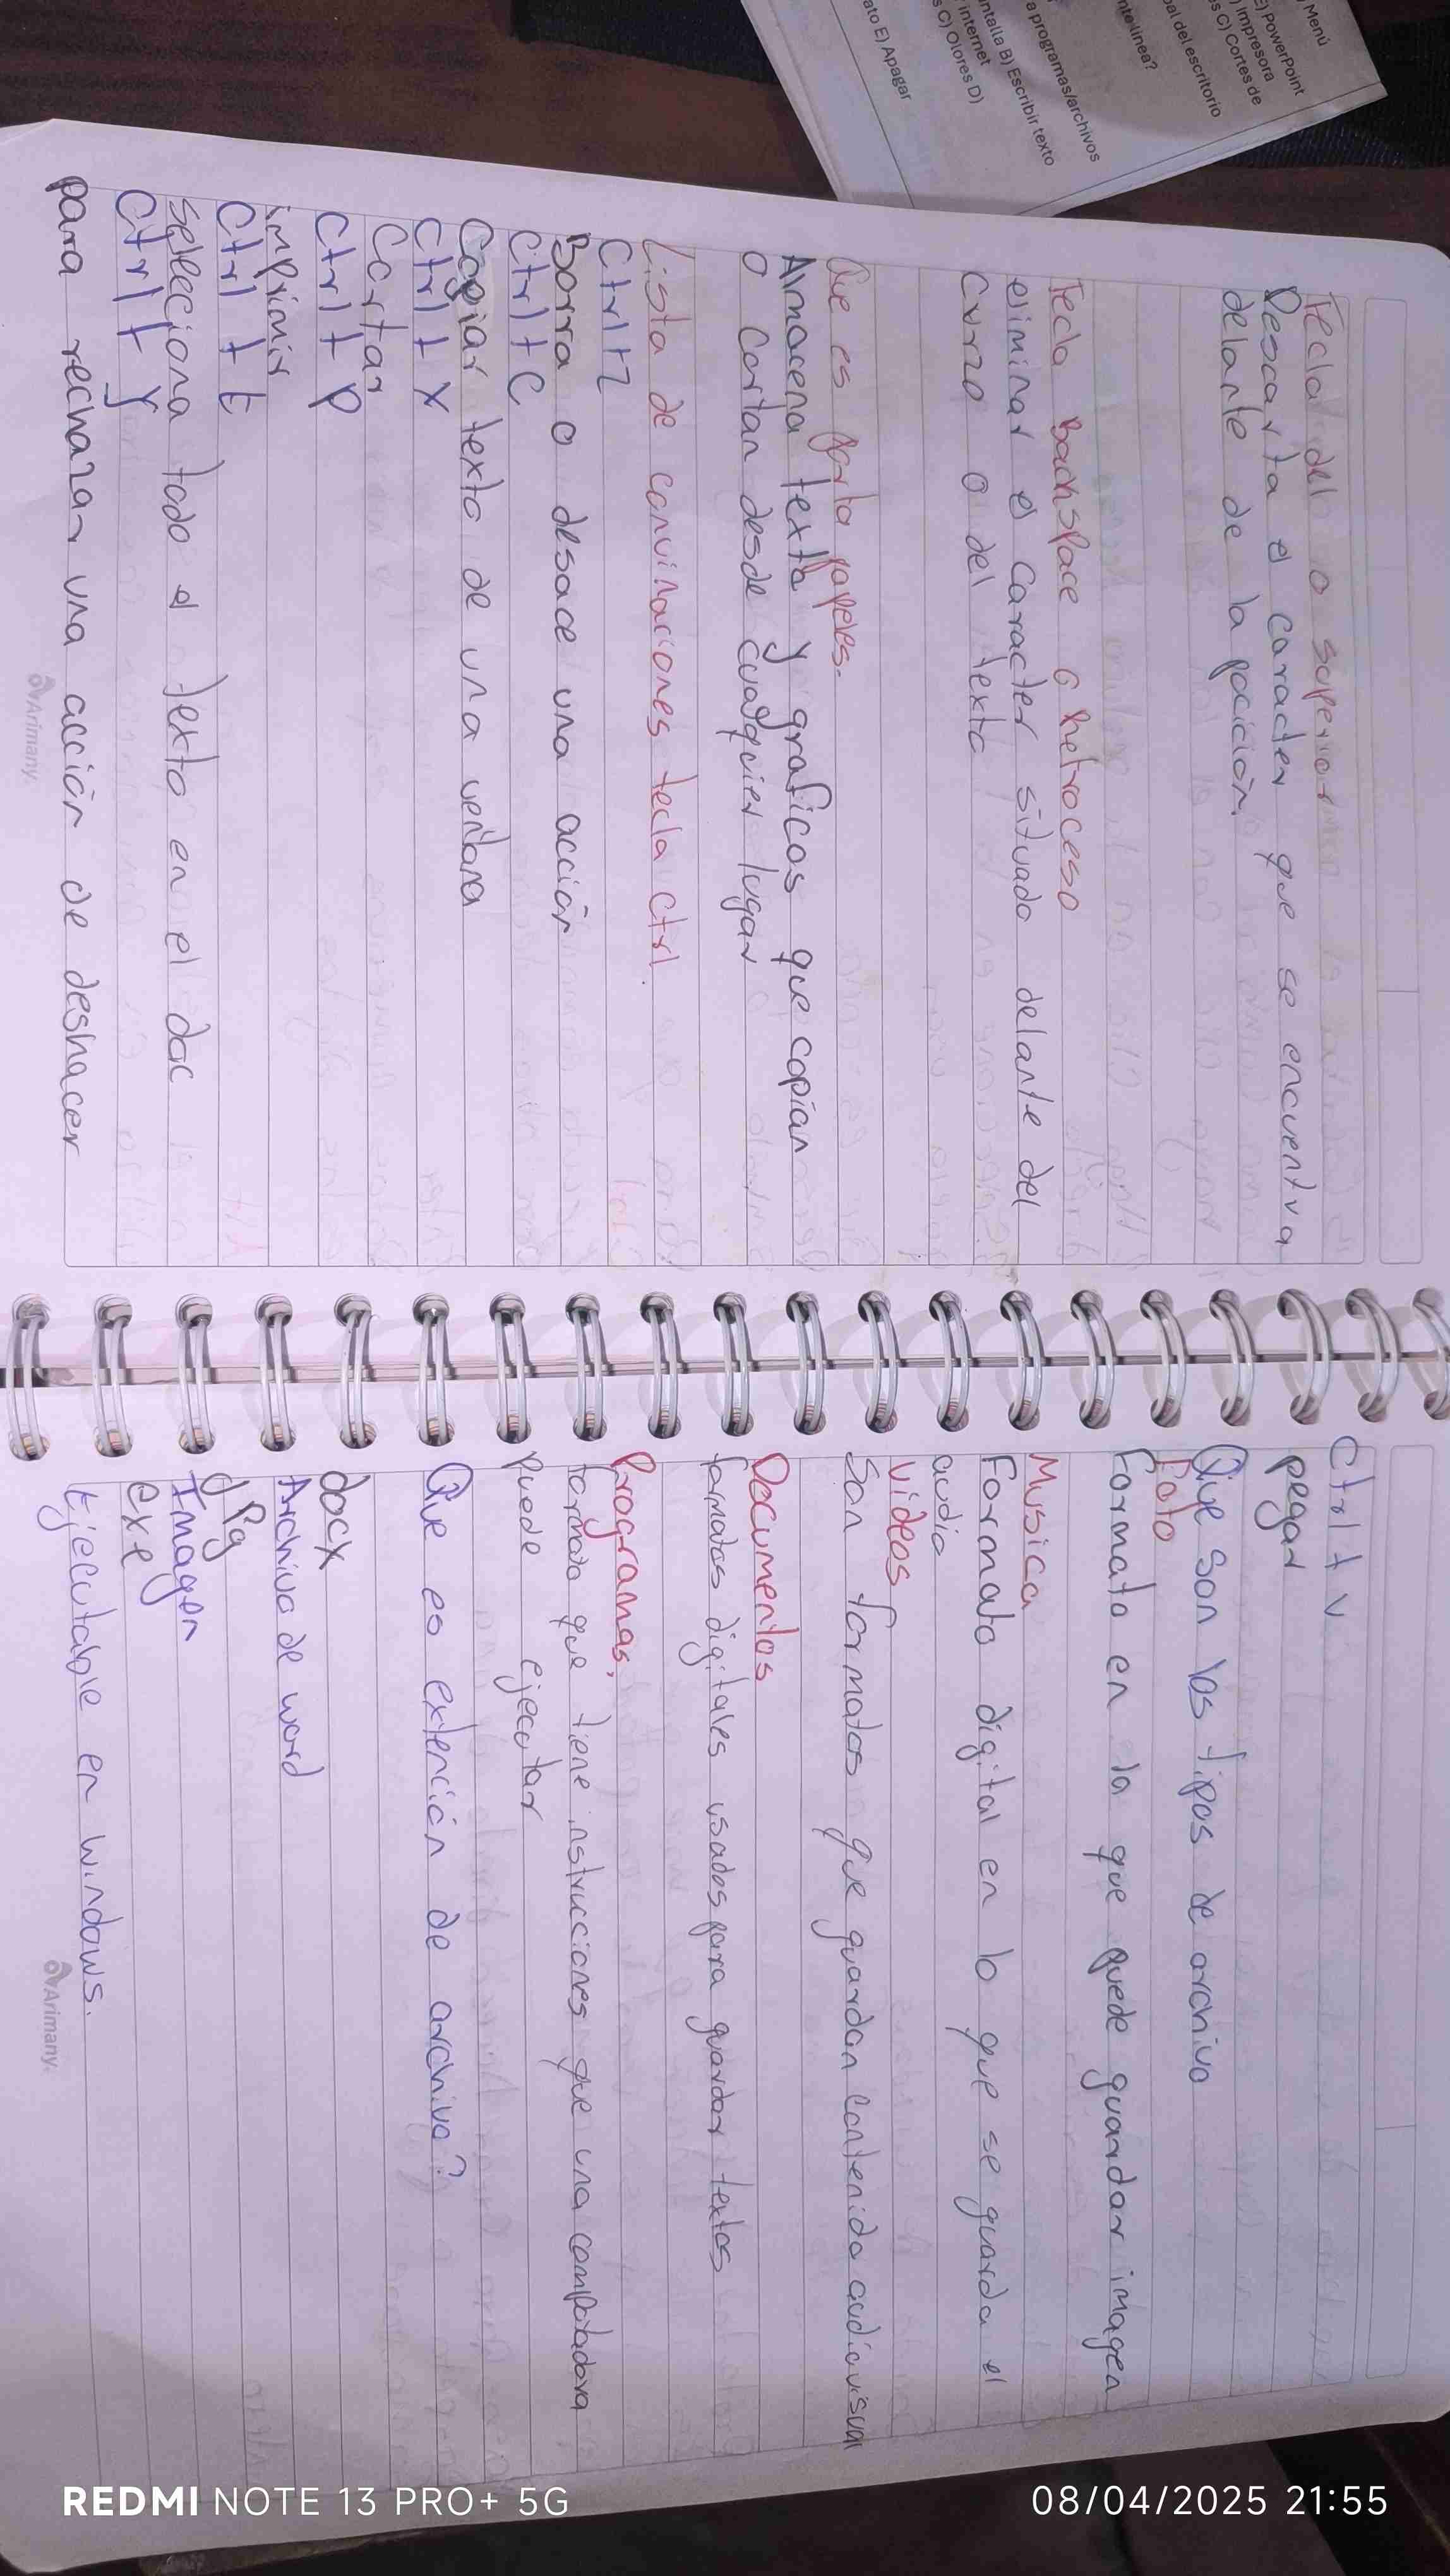 Tecla del o superar
Descarta el caracter que se encuentra
delante de la pocición.
Tecla Backspace o hetroceso
eliminar el caracter situado delante del
curzo o del texto
Que es porta papeles.
Almacena texto y graficos que copian
o cortan desde cualquier lugar
Lista de convinaciones tecla ctrl.
Ctrl+z
Borra o desace una acción
Ctrl+c
Copiar texto de una ventana
Ctrl+x
Cortar
Ctrl+p
imprimir
Ctrl+E
seleciona todo el texto en el doc
Ctrl+y
para rechazar una acción de deshacer
Arimany.
Ctrl+v
pegar
Que son los tipos de archivo
Foto
Formato en la que puede guardar imagen
Musica
Formato digital en lo que se guarda el
audio
videos
Son formatos que guardan contenido audiovisual
Documentos
formatos digitales usados para guardar textos
Programas,
formato que tiene instrucciones que una computadora
puede ejecutar
Que es extención de archivo?
docx
Archivo de word
jpg
Imagen
exe
Ejecutable en windows.
Arimany.
Menú
E) PowerPoint
) Impresora
s C) Cortes de
pal del escritorio
nte línea?
a programas/archivos
ntalla B) Escribir texto
Internet
s C) Olores D)
ato E) Apagar
REDMI NOTE 13 PRO+ 5G
08/04/2025 21:55